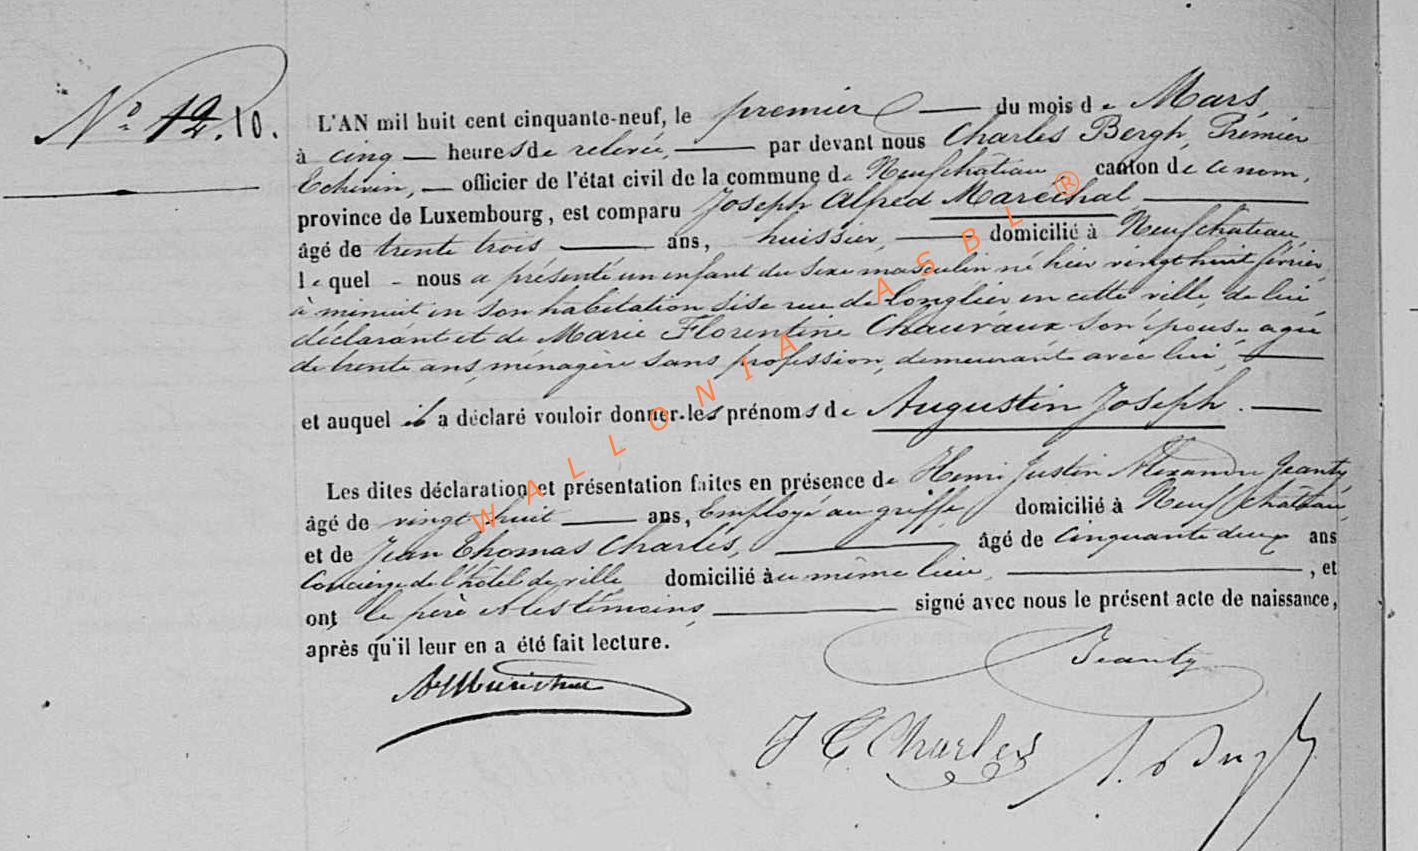 N° 12. 10.
L'AN mil huit cent cinquante-neuf, le premier du mois de Mars,
à cinq heures de relevée, par devant nous Charles Bergh, Premier
Echevin, officier de l'état civil de la commune de Neufchateau, canton de ce nom,
province de Luxembourg, est comparu Joseph Alfred Maréchal
âgé de trente trois ans, huissier, domicilié à Neufchateau,
lequel nous a présenté un enfant du sexe masculin né hier vingt huit février,
à minuit en son habitation sise rue de Longlier en cette ville, de lui
déclarant et de Marie Florentine Chauvaux son épouse agée
de trente ans, ménagère sans profession, demeurante avec lui,
et auquel il a déclaré vouloir donner les prénoms de Augustin Joseph.
Les dites déclaration et présentation faites en présence de Henri Justin Alexandre Jeanty
âgé de vingt huit ans, Employé au griffe domicilié à Neufchateau
et de Jean Thomas Charles, âgé de Cinquante deux ans
Concierge de l'hôtel de ville domicilié au même lieu, , et
ont le père et les témoins, signé avec nous le présent acte de naissance,
après qu'il leur en a été fait lecture.
Jeanty
J T Charles
WALLONIA ASBL ®